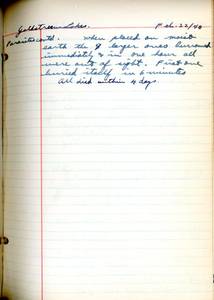 Goldstream Lakes. Feb. 22/40
Parasites contd. When placed on moist
earth the 8 larger ones burrowed
immediately & in one hour all
were out of sight. First one
buried itself in 6 minutes
All died within 4 days.